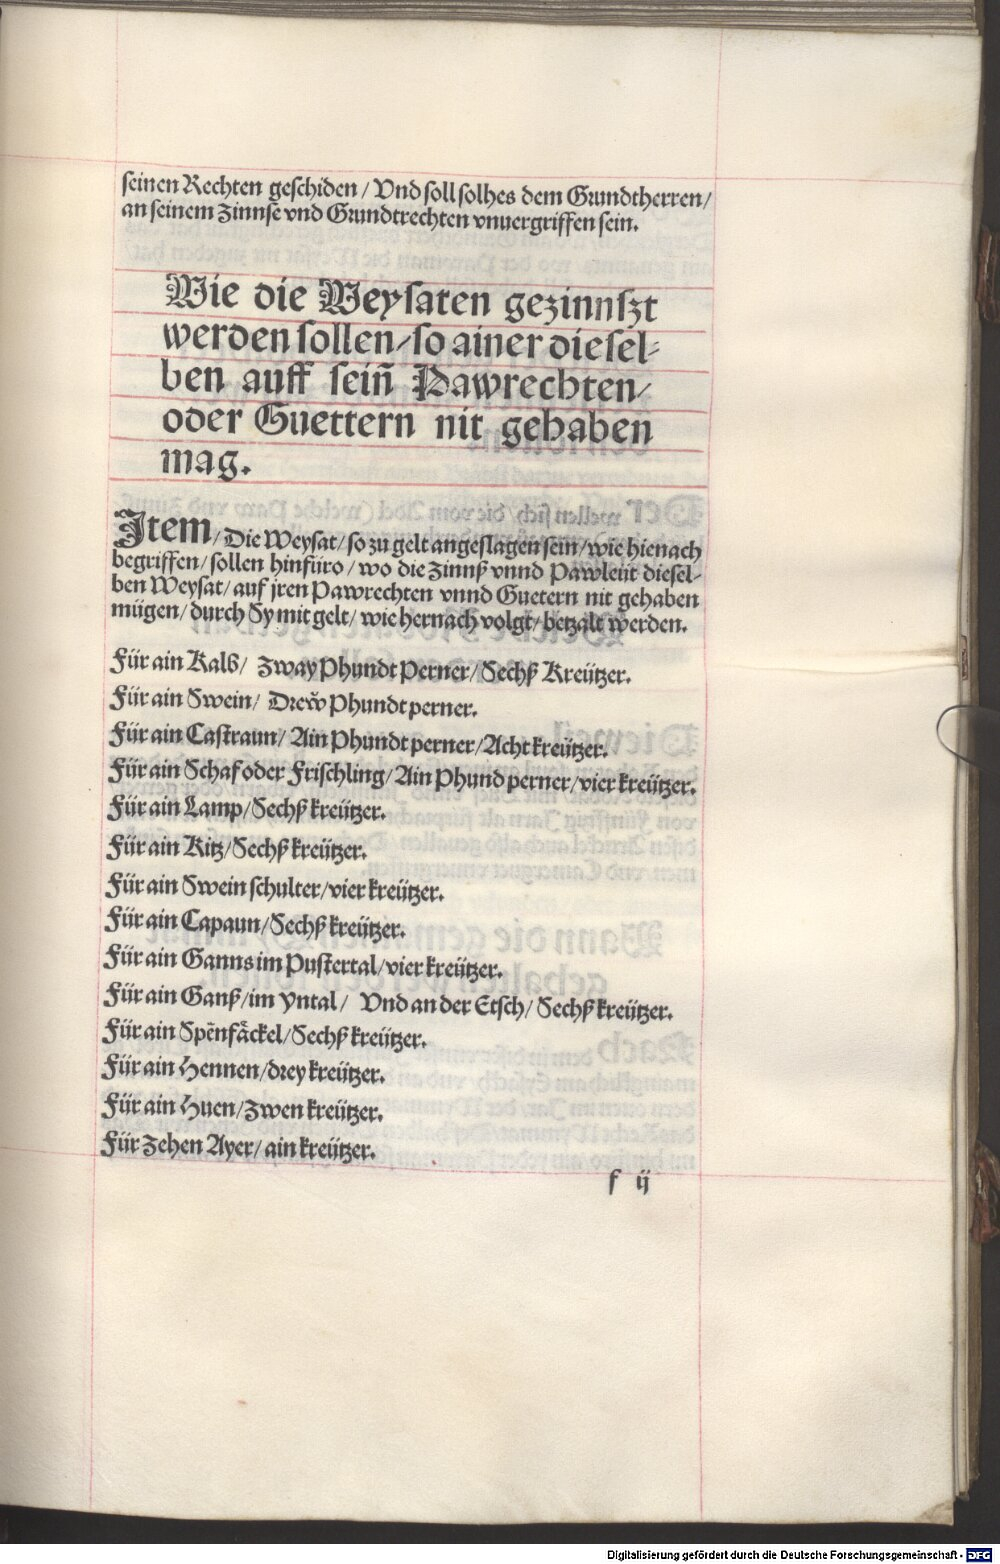 seinen Rechten geschiden / Vnd soll solhes dem Grundtherren /
an seinem Zinnse vnd Grundtrechten vnuergriffen sein.
Wie die Weysaten gezinnszt
werden sollen / so ainer diesel-
ben auff sein̄ Pawrechten /
oder Guettern nit gehaben
mag.
Item / Die Weysat / so zu gelt angeslagen sein / wie hienach
begriffen / sollen hinfüro / wo die Zinnß vnnd Pawleüt diesel-
ben Weysat / auf jren Pawrechten vnnd Guetern nit gehaben
mügen / durch Sy mit gelt / wie hernach volgt / betzalt werden.
Für ain Kalb / Zway Phundt Perner / Sechß Kreützer.
Für ain Swein / Drew̆ Phundt perner.
Für ain Castraun / Ain Phundt perner / Acht kreützer.
Für ain Schaf oder Frischling / Ain Phund perner / vier kreützer.
Für ain Lamp / Sechß kreützer.
Für ain Kitz / Sechß kreützer.
Für ain Swein schulter / vier kreützer.
Für ain Capaun / Sechß kreützer.
Für ain Ganns im Pustertal / vier kreützer.
Für ain Ganß / im Yntal / Vnd an der Etsch / Sechß kreützer.
Für ain Spēnfäckel / Sechß kreützer.
Für ain Hennen / drey kreützer.
Für ain Huen / Zwen kreützer.
Für Zehen Ayer / ain kreützer.
f ij
Digitalisierung gefördert durch die Deutsche Forschungsgemeinschaft - DFG